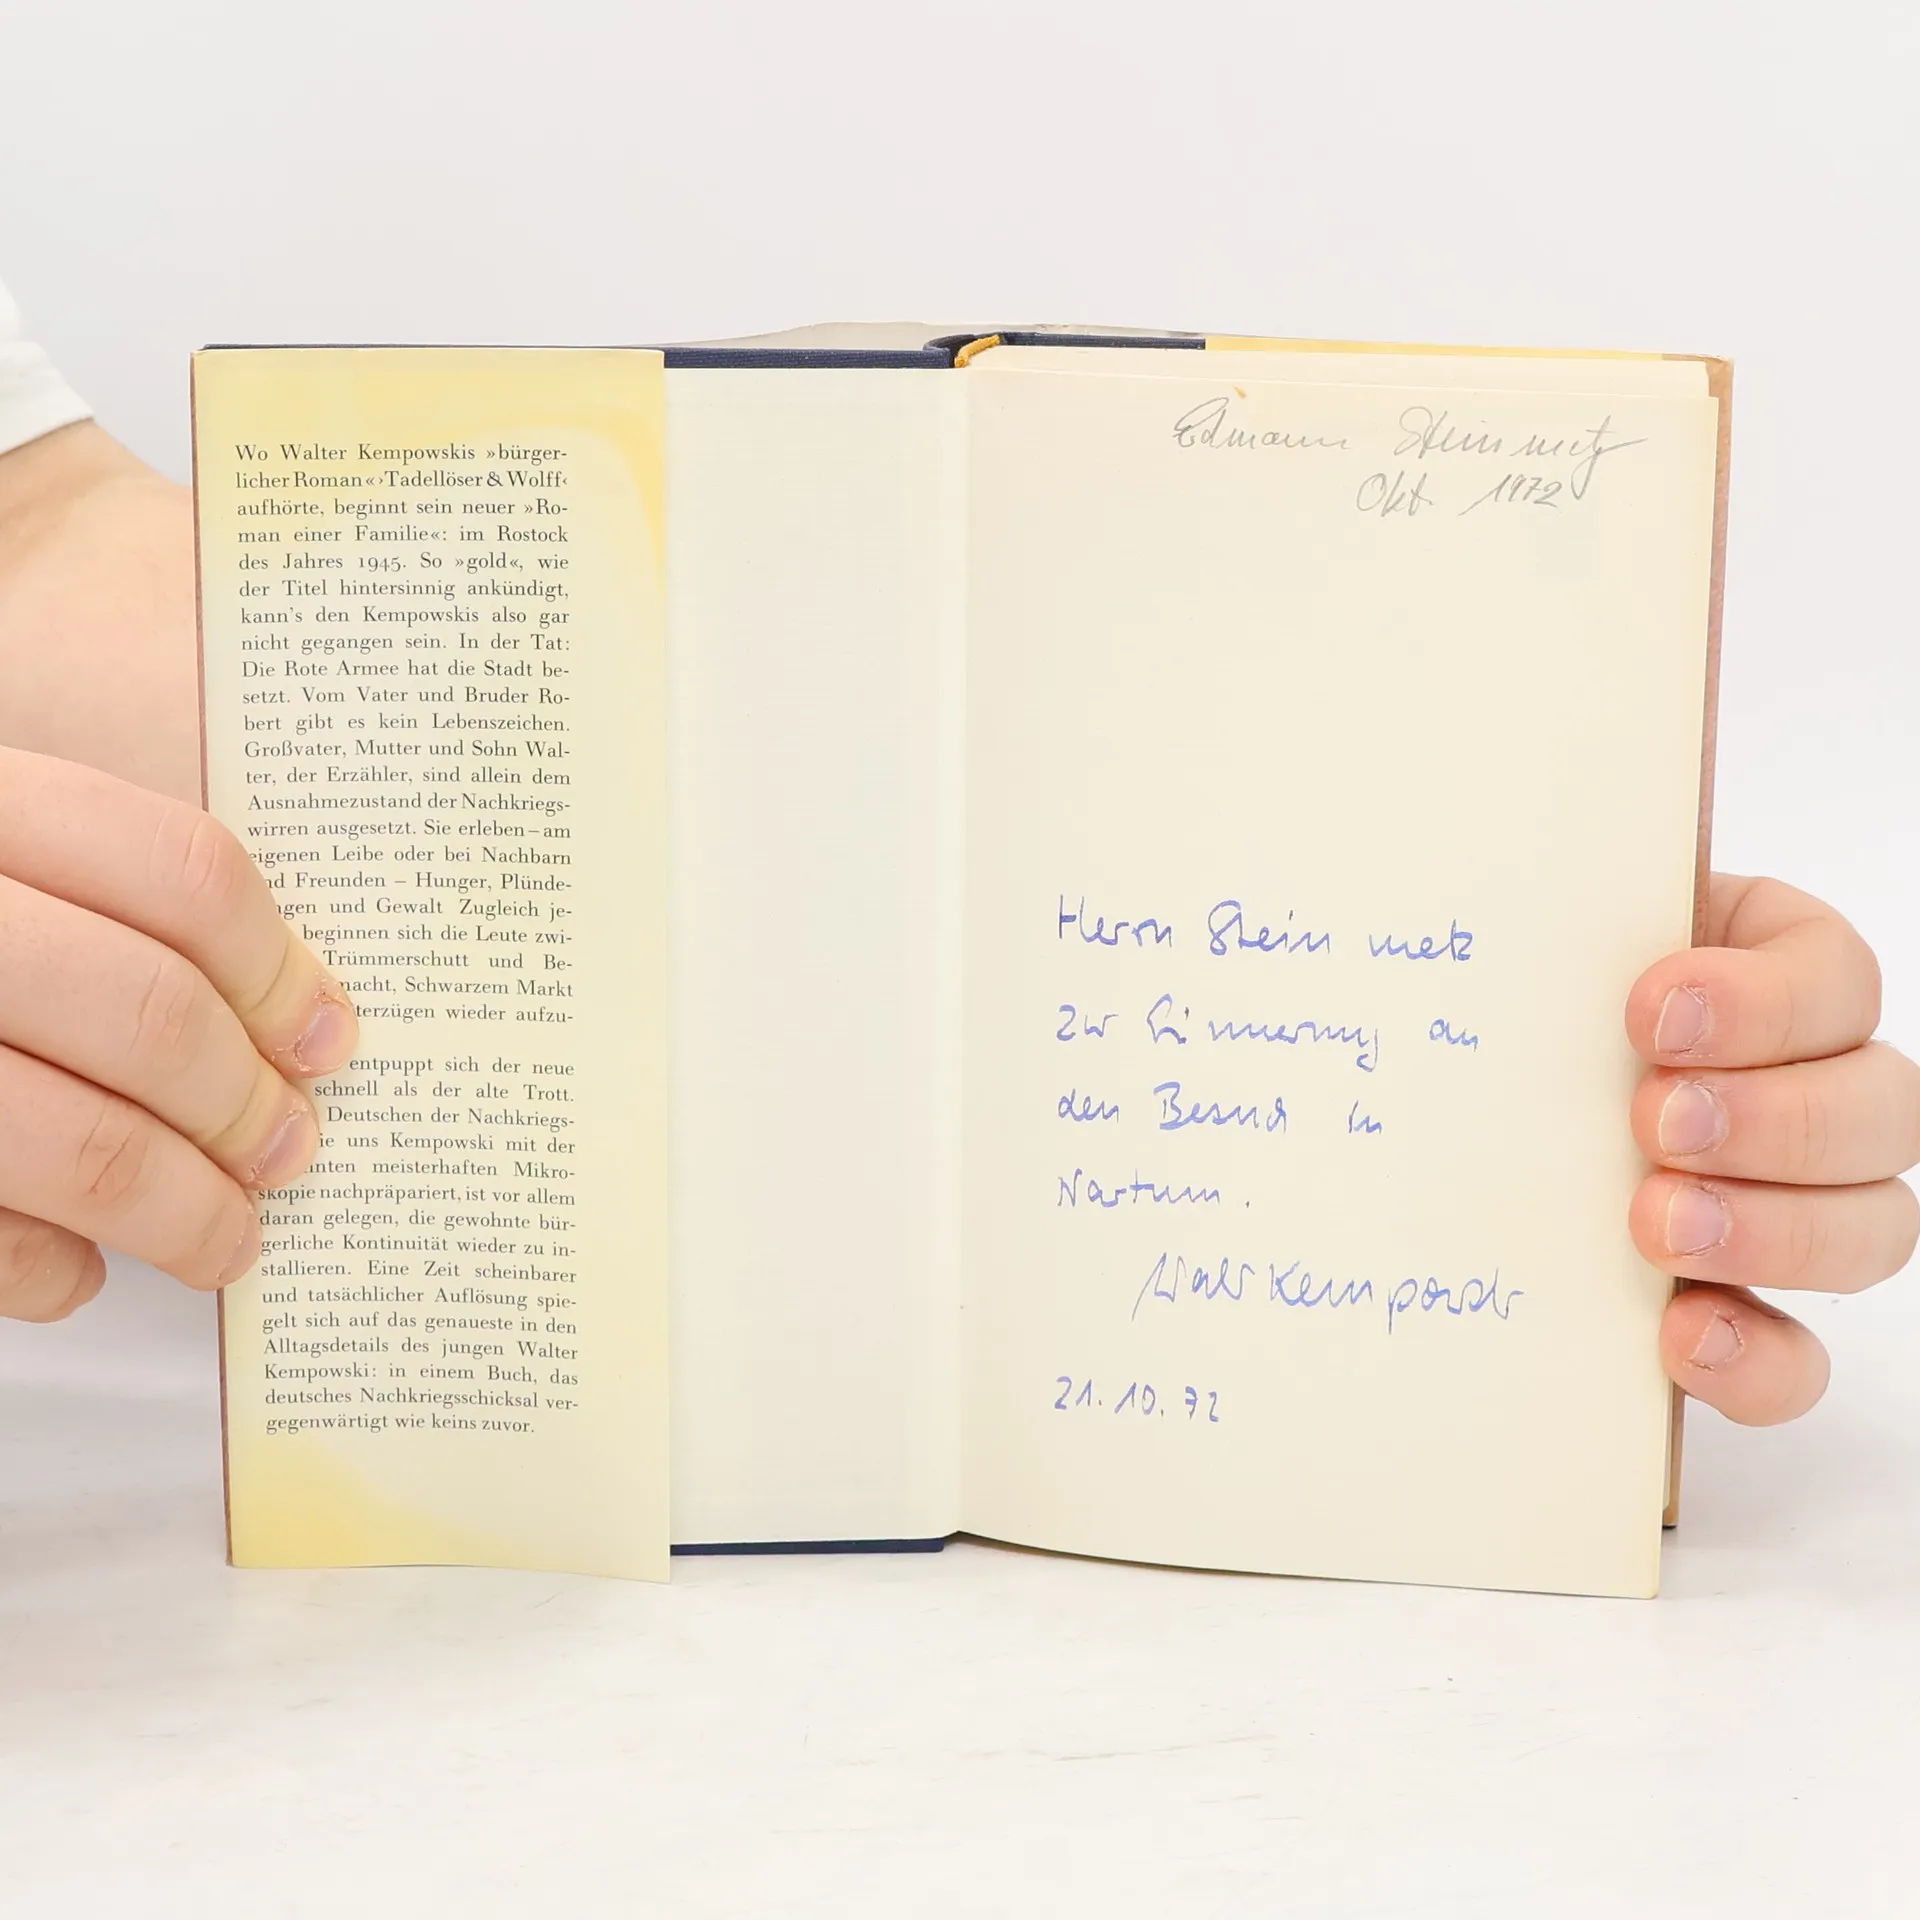 Wo Walter Kempowskis »bürger-
licher Roman«›Tadellöser & Wolff‹
aufhörte, beginnt sein neuer »Ro-
man einer Familie«: im Rostock
des Jahres 1945. So »gold«, wie
der Titel hintersinnig ankündigt,
kann's den Kempowskis also gar
nicht gegangen sein. In der Tat:
Die Rote Armee hat die Stadt be-
setzt. Vom Vater und Bruder Ro-
bert gibt es kein Lebenszeichen.
Großvater, Mutter und Sohn Wal-
ter, der Erzähler, sind allein dem
Ausnahmezustand der Nachkriegs-
wirren ausgesetzt. Sie erleben – am
eigenen Leibe oder bei Nachbarn
nd Freunden – Hunger, Plünde-
ngen und Gewalt Zugleich je-
beginnen sich die Leute zwi-
Trümmerschutt und Be-
macht, Schwarzem Markt
terzügen wieder aufzu-
entpuppt sich der neue
schnell als der alte Trott.
Deutschen der Nachkriegs-
ie uns Kempowski mit der
nnten meisterhaften Mikro-
skopie nachpräpariert, ist vor allem
daran gelegen, die gewohnte bür-
gerliche Kontinuität wieder zu in-
stallieren. Eine Zeit scheinbarer
und tatsächlicher Auflösung spie-
gelt sich auf das genaueste in den
Alltagsdetails des jungen Walter
Kempowski: in einem Buch, das
deutsches Nachkriegsschicksal ver-
gegenwärtigt wie keins zuvor.
Edmann Steinmetz
Okt. 1972
Herrn Steinmetz
zur Erinnerung an
den Besuch in
Nartum.
Walter Kempowski
21.10.72